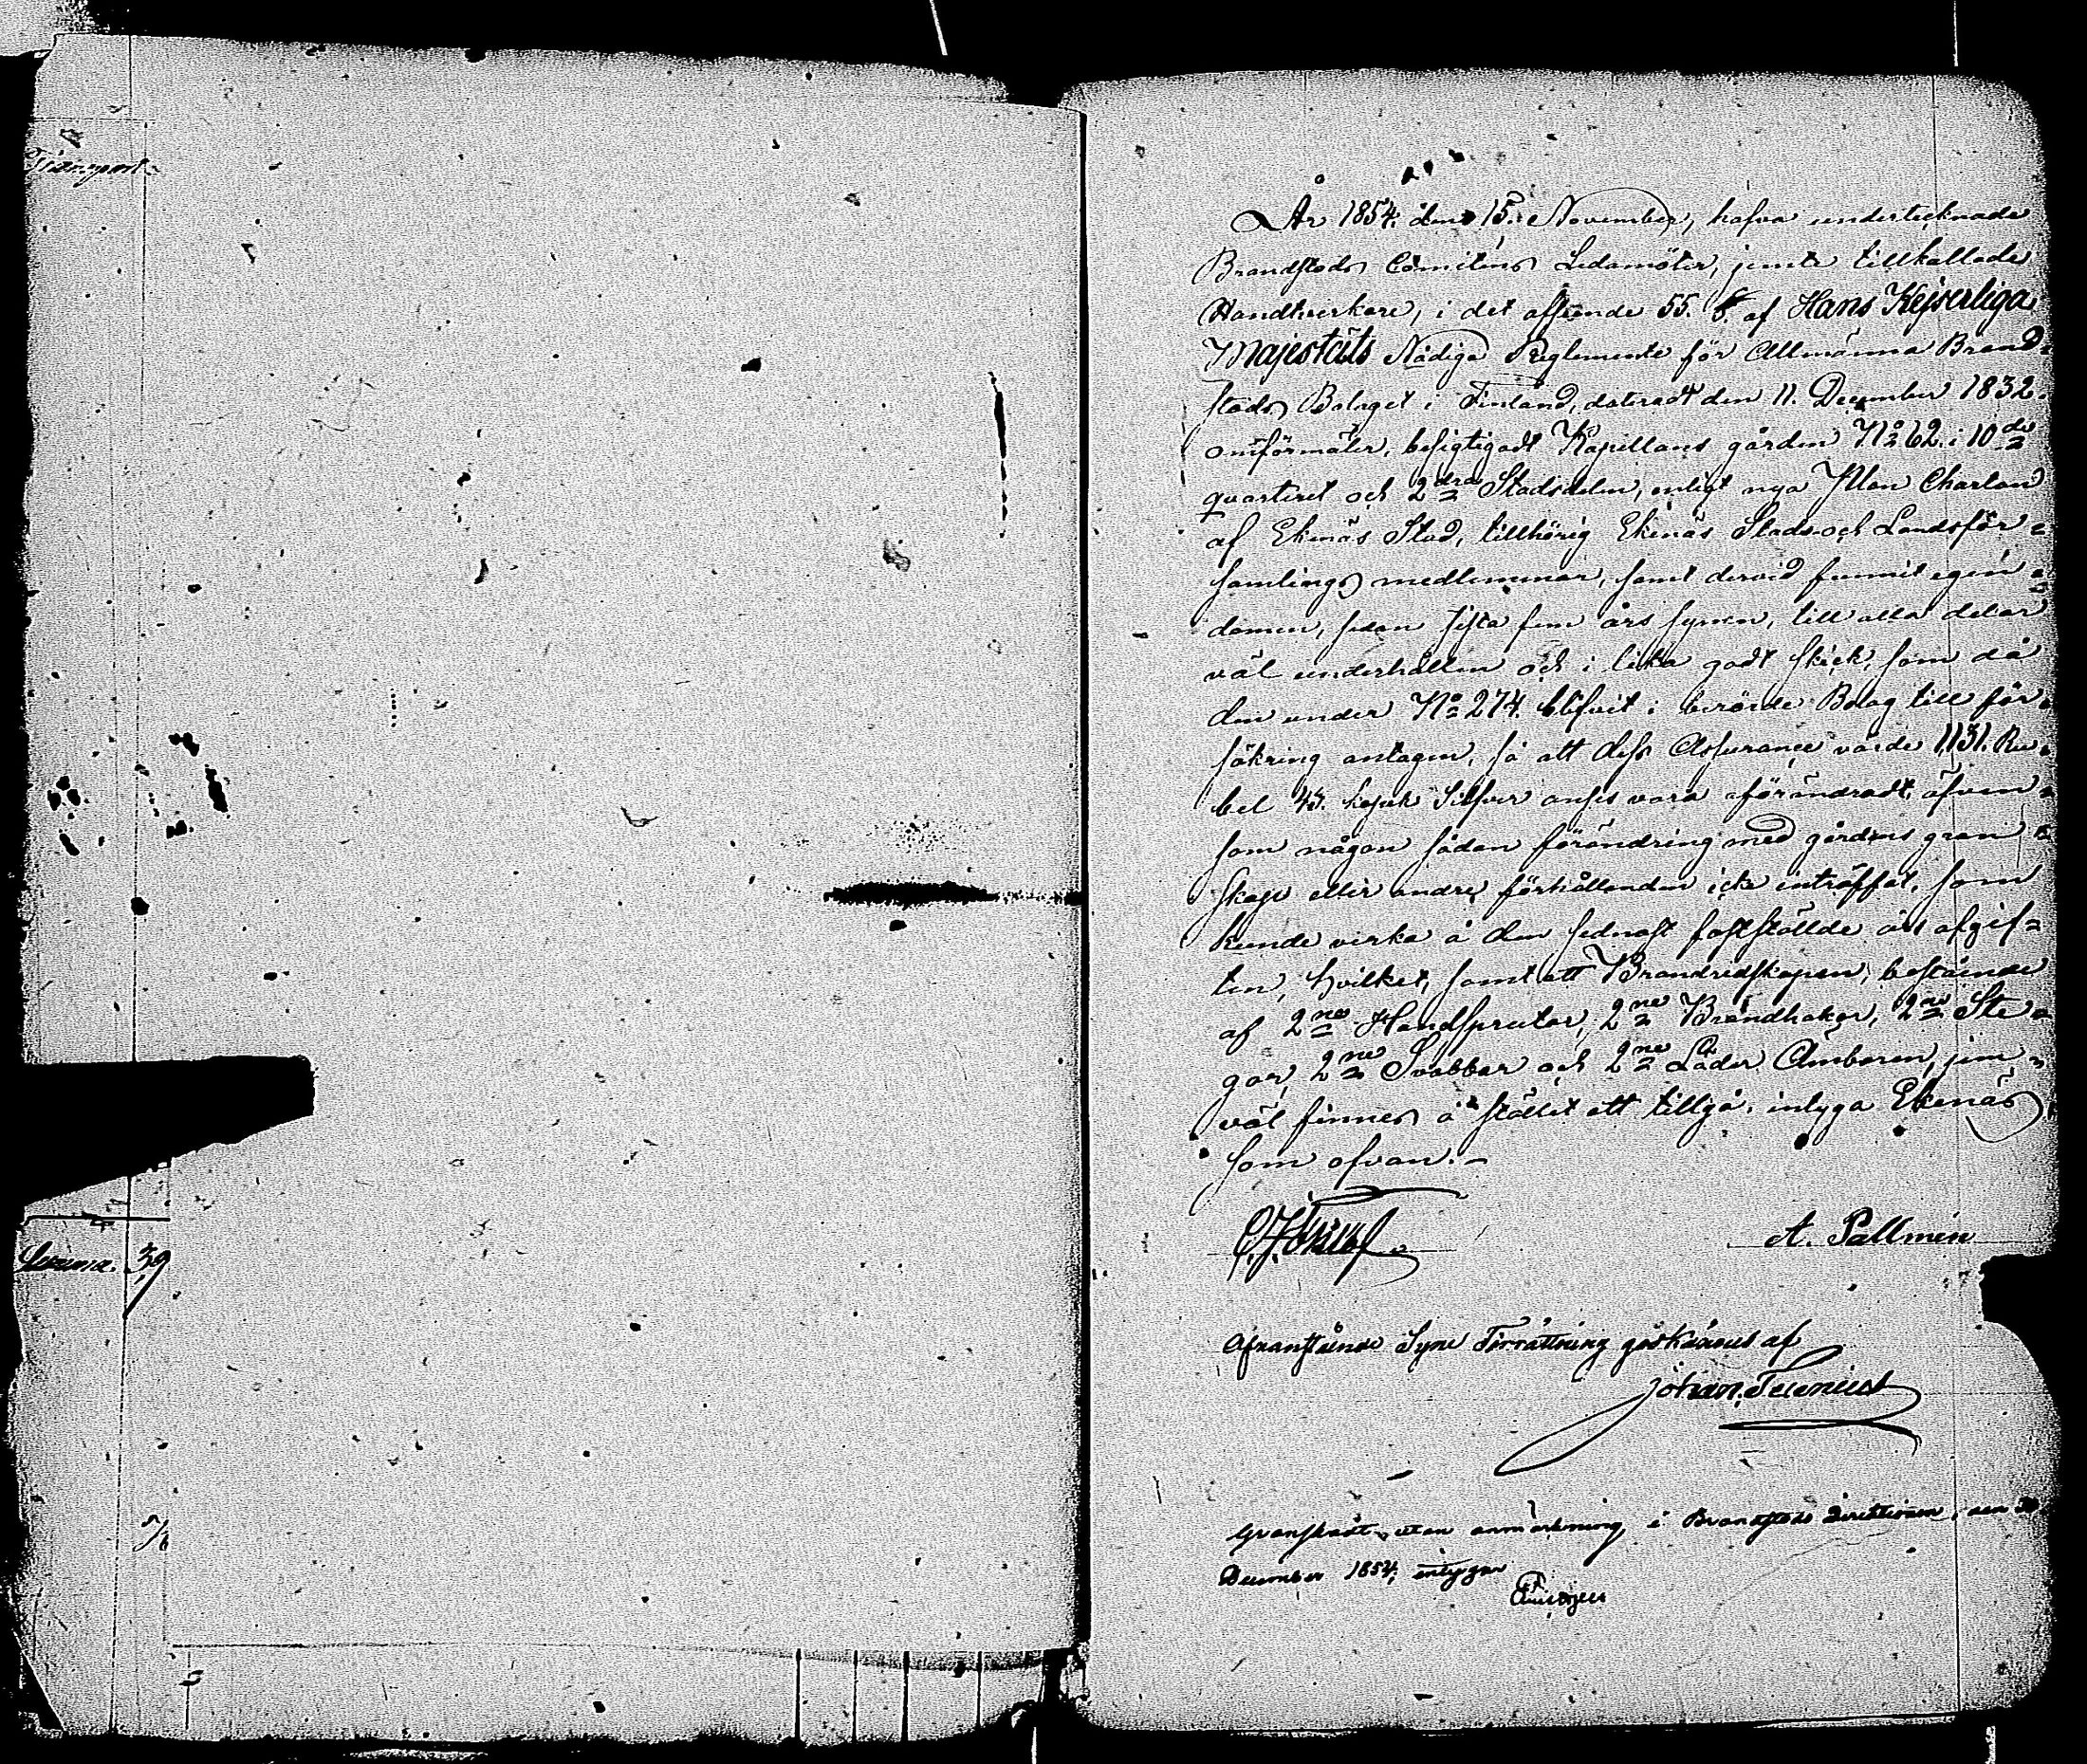 Transport
Summa. 39
År 1854. den 15. November, hafva undertecknade
Brandstods Comiténs Ledamöter, jemte tillkallade
Handtverkare, i det afseende 55. §. af Hans Kejserliga
Majestäts Nådiga Reglemente för Allmänna Brand-
stods Bolaget i Finland, dateradt den 11. December 1832.
omförmäler, besigtigadt Kapellans gården No 62. i 10de
quarteret och 2dra Stadsdelen, enligt nya Plan Chartan
af Ekenäs Stad, tillhörig Ekenäs Stads och Landsför=
samlings medlemmar, samt dervid funnit egen=
domen, sedan sista fem års synen, till alla delar
väl underhållen och i lika godt skick, som då
den under No 274. blifvit i berörde Bolag till för-
säkring antagen, så att dess Assurance värde 1,131. Ru-
bel 43. kopek Silfver anses vara oförändradt, äfven-
som någon sådan förändring med gårdens gran=
skap eller andre förhållanden icke inträffat, som
kunde verka å den sednast fastställde års afgif=
ten, hvilket, samt att Brandredskapen, bestående
af 2ne Handsprutor, 2ne Brandhakar, 2ne Ste=
gar, 2ne Svabbar och 2ne Läder Ämbaren, jem=
väl finnes å stället att tillgå, intyga Ekenäs
som ofvan.-
A. Pallmén
Ofvanstående Syne Förrättning godkännes af
Johan
Granskadt, utan anmärkning, i Brandstods Direktionen, den
December 1854, intygar